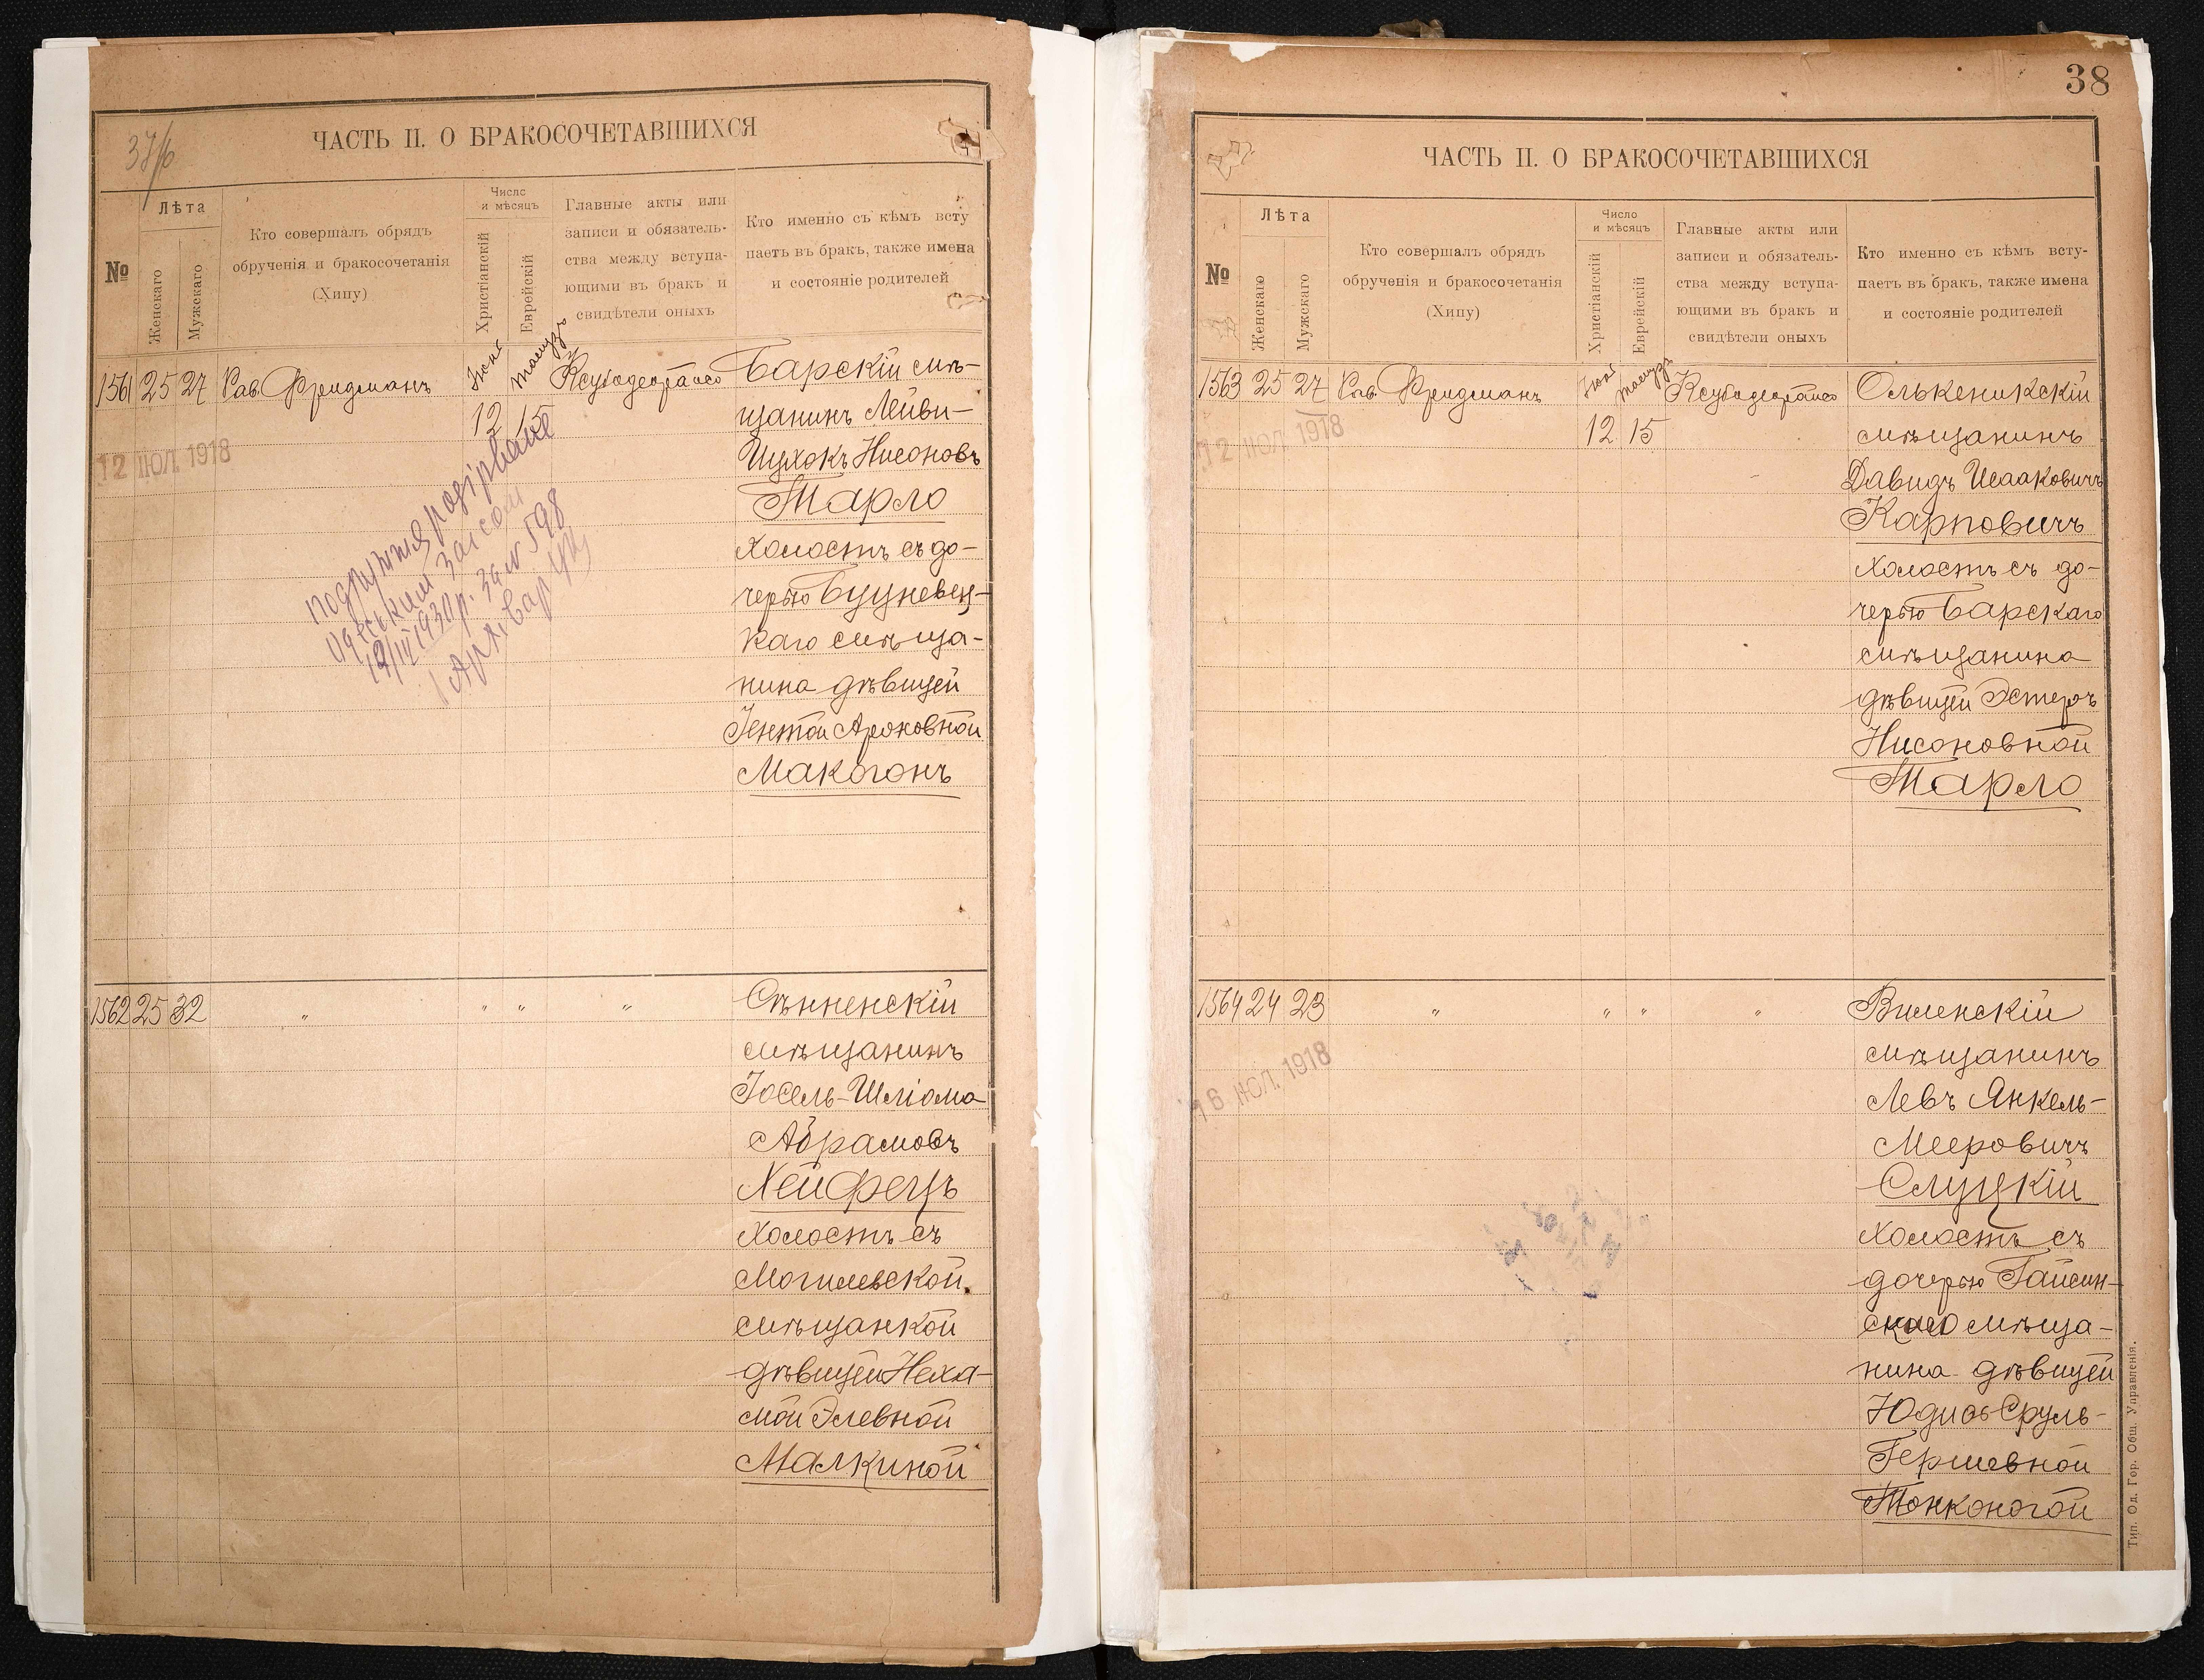 37/б
ЧАСТЬ II. О БРАКОСОЧЕТАВШИХСЯ
№
Лѣта
Женскаго
Мужскаго
Кто совершалъ обрядъ
обрученія и бракосочетанія
(Хипу)
Число
и мѣсяцъ
Христіанскій
Еврейскій
Главные акты или
записи и обязатель-
ства между вступа-
ющими въ бракъ и
свидѣтели оныхъ
Кто именно съ кѣмъ всту
паетъ въ бракъ, также имена
и состояніе родителей
1561 25 27 Рав. Фридманъ
12 15
12 ІЮЛ. 1918
Барскій мѣ-
щанинъ Лейви-
Ицхокъ Нисоновъ
Тарло
холостъ съ до-
черью Буцневец-
каго мѣща-
нина дѣвицей
Іентой Ароновной
Макогонъ
подружжя розірване
Одеським загсом
12/III 1930 р. за № 598
Архівар
1562 25 32 " " " "
Сѣнненскій
мѣщанинъ
Іосель-Шліома
Абрамовъ
Хейфецъ
холостъ съ
Могилевской
мѣщанкой
дѣвицей Неха-
мой Элевной
Малкиной
38
ЧАСТЬ II. О БРАКОСОЧЕТАВШИХСЯ
№
Лѣта
Женскаго
Мужскаго
Кто совершалъ обрядъ
обрученія и бракосочетанія
(Хипу)
Число
и мѣсяцъ
Христіанскій
Еврейскій
Главные акты или
записи и обязатель-
ства между вступа-
ющими въ бракъ и
свидѣтели оныхъ
Кто именно съ кѣмъ всту-
паетъ въ бракъ, также имена
и состояніе родителей
1563 25 27 Рав. Фридманъ
12 15
12 ІЮЛ. 1918
Олькеникскій
мѣщанинъ
Давидъ Исааковичъ
Карповичъ
холостъ съ до-
черью Барскаго
мѣщанина
дѣвицей Эстеръ
Нисоновной
Тарло
1564 24 23 " " " "
16 ІЮЛ. 1918
Виленскій
мѣщанинъ
Левъ Янкель-
Мееровичъ
Слуцкій
холостъ съ
дочерью Гайсин-
скаго мѣща-
нина дѣвицей
Юдись Сруль-
Гершевной
Тонконогой
Тип. Од. Гор. Общ. Управленія.